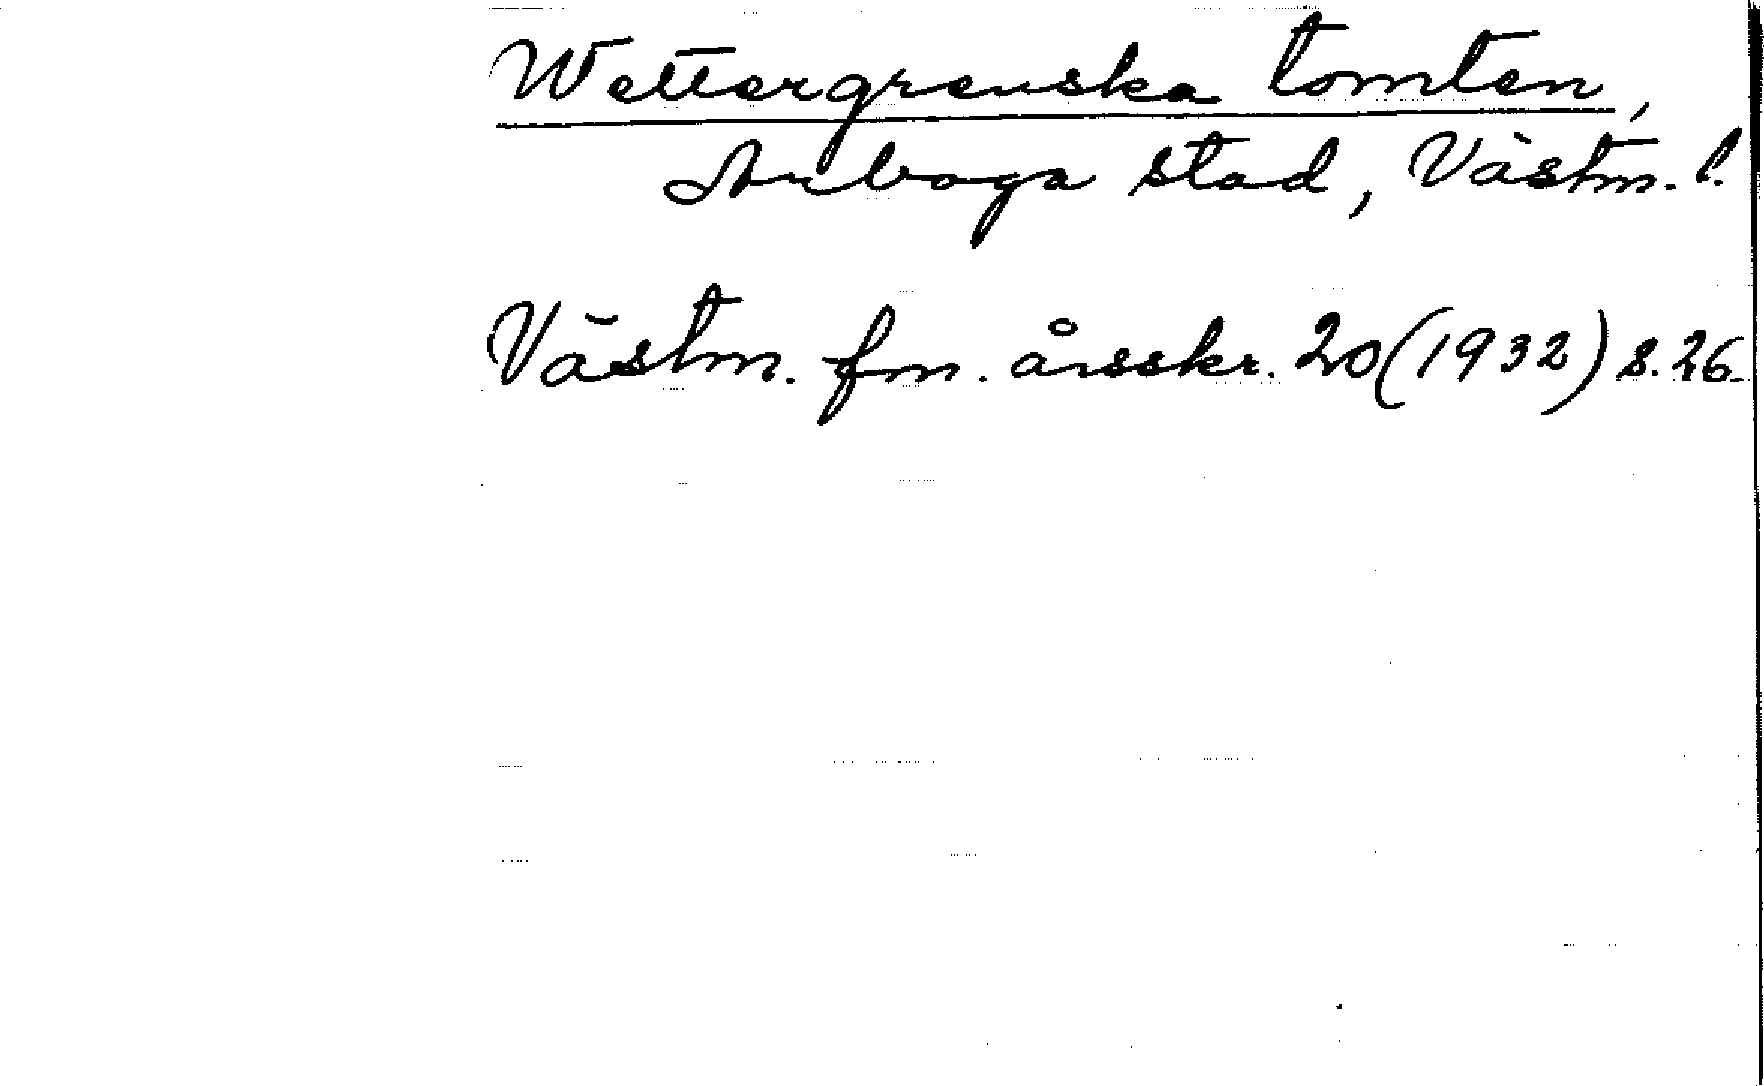 Wettergrenska tomten,
Arboga stad, Västm. l.
Västm. fm. årsskr. 20 (1932) s. 26.